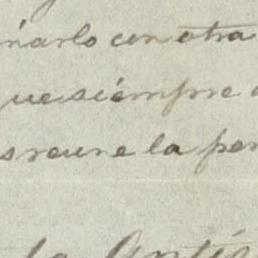 ñarlo con otra
que siémpre
s reune la per
la Antig